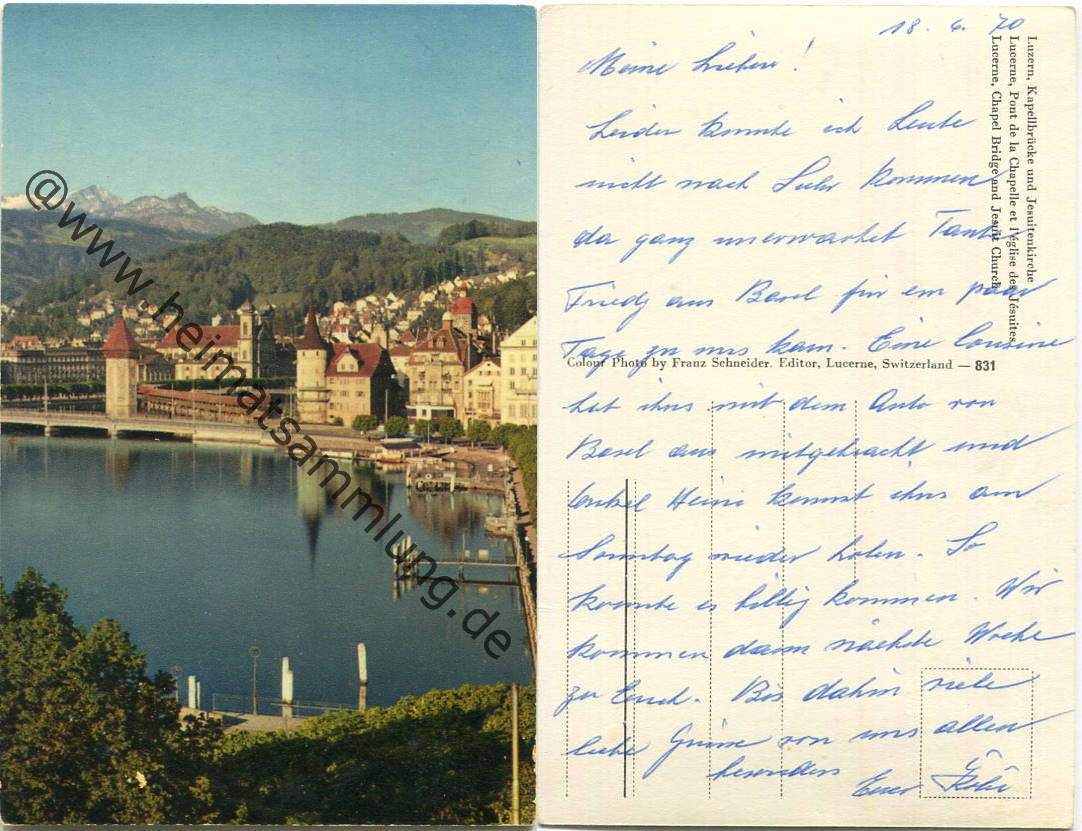 @www.heimatsammlung.de
18. 6. 70
Meine Lieben!
Leider konnte ich heute
nicht nach Suhr kommen
da ganz unerwartet Tante
Friedy aus Basel für ein paar
Tage zu uns kam. Eine Cousine
hat ihns mit dem Auto von
Basel aus mitgebracht und
Onkel Heini kommt ihns am
Sonntag wieder holen. So
konnte es billig kommen. Wir
kommen dann nächste Woche
zu Euch. Bis dahin viele
liebe Grüsse von uns allen
besonders Euer
Luzern, Kapellbrücke und Jesuitenkirche
Lucerne, Pont de la Chapelle et l'église des Jésuites
Lucerne, Chapel Bridge and Jesuit Church
Colour Photo by Franz Schneider. Editor, Lucerne, Switzerland — 831